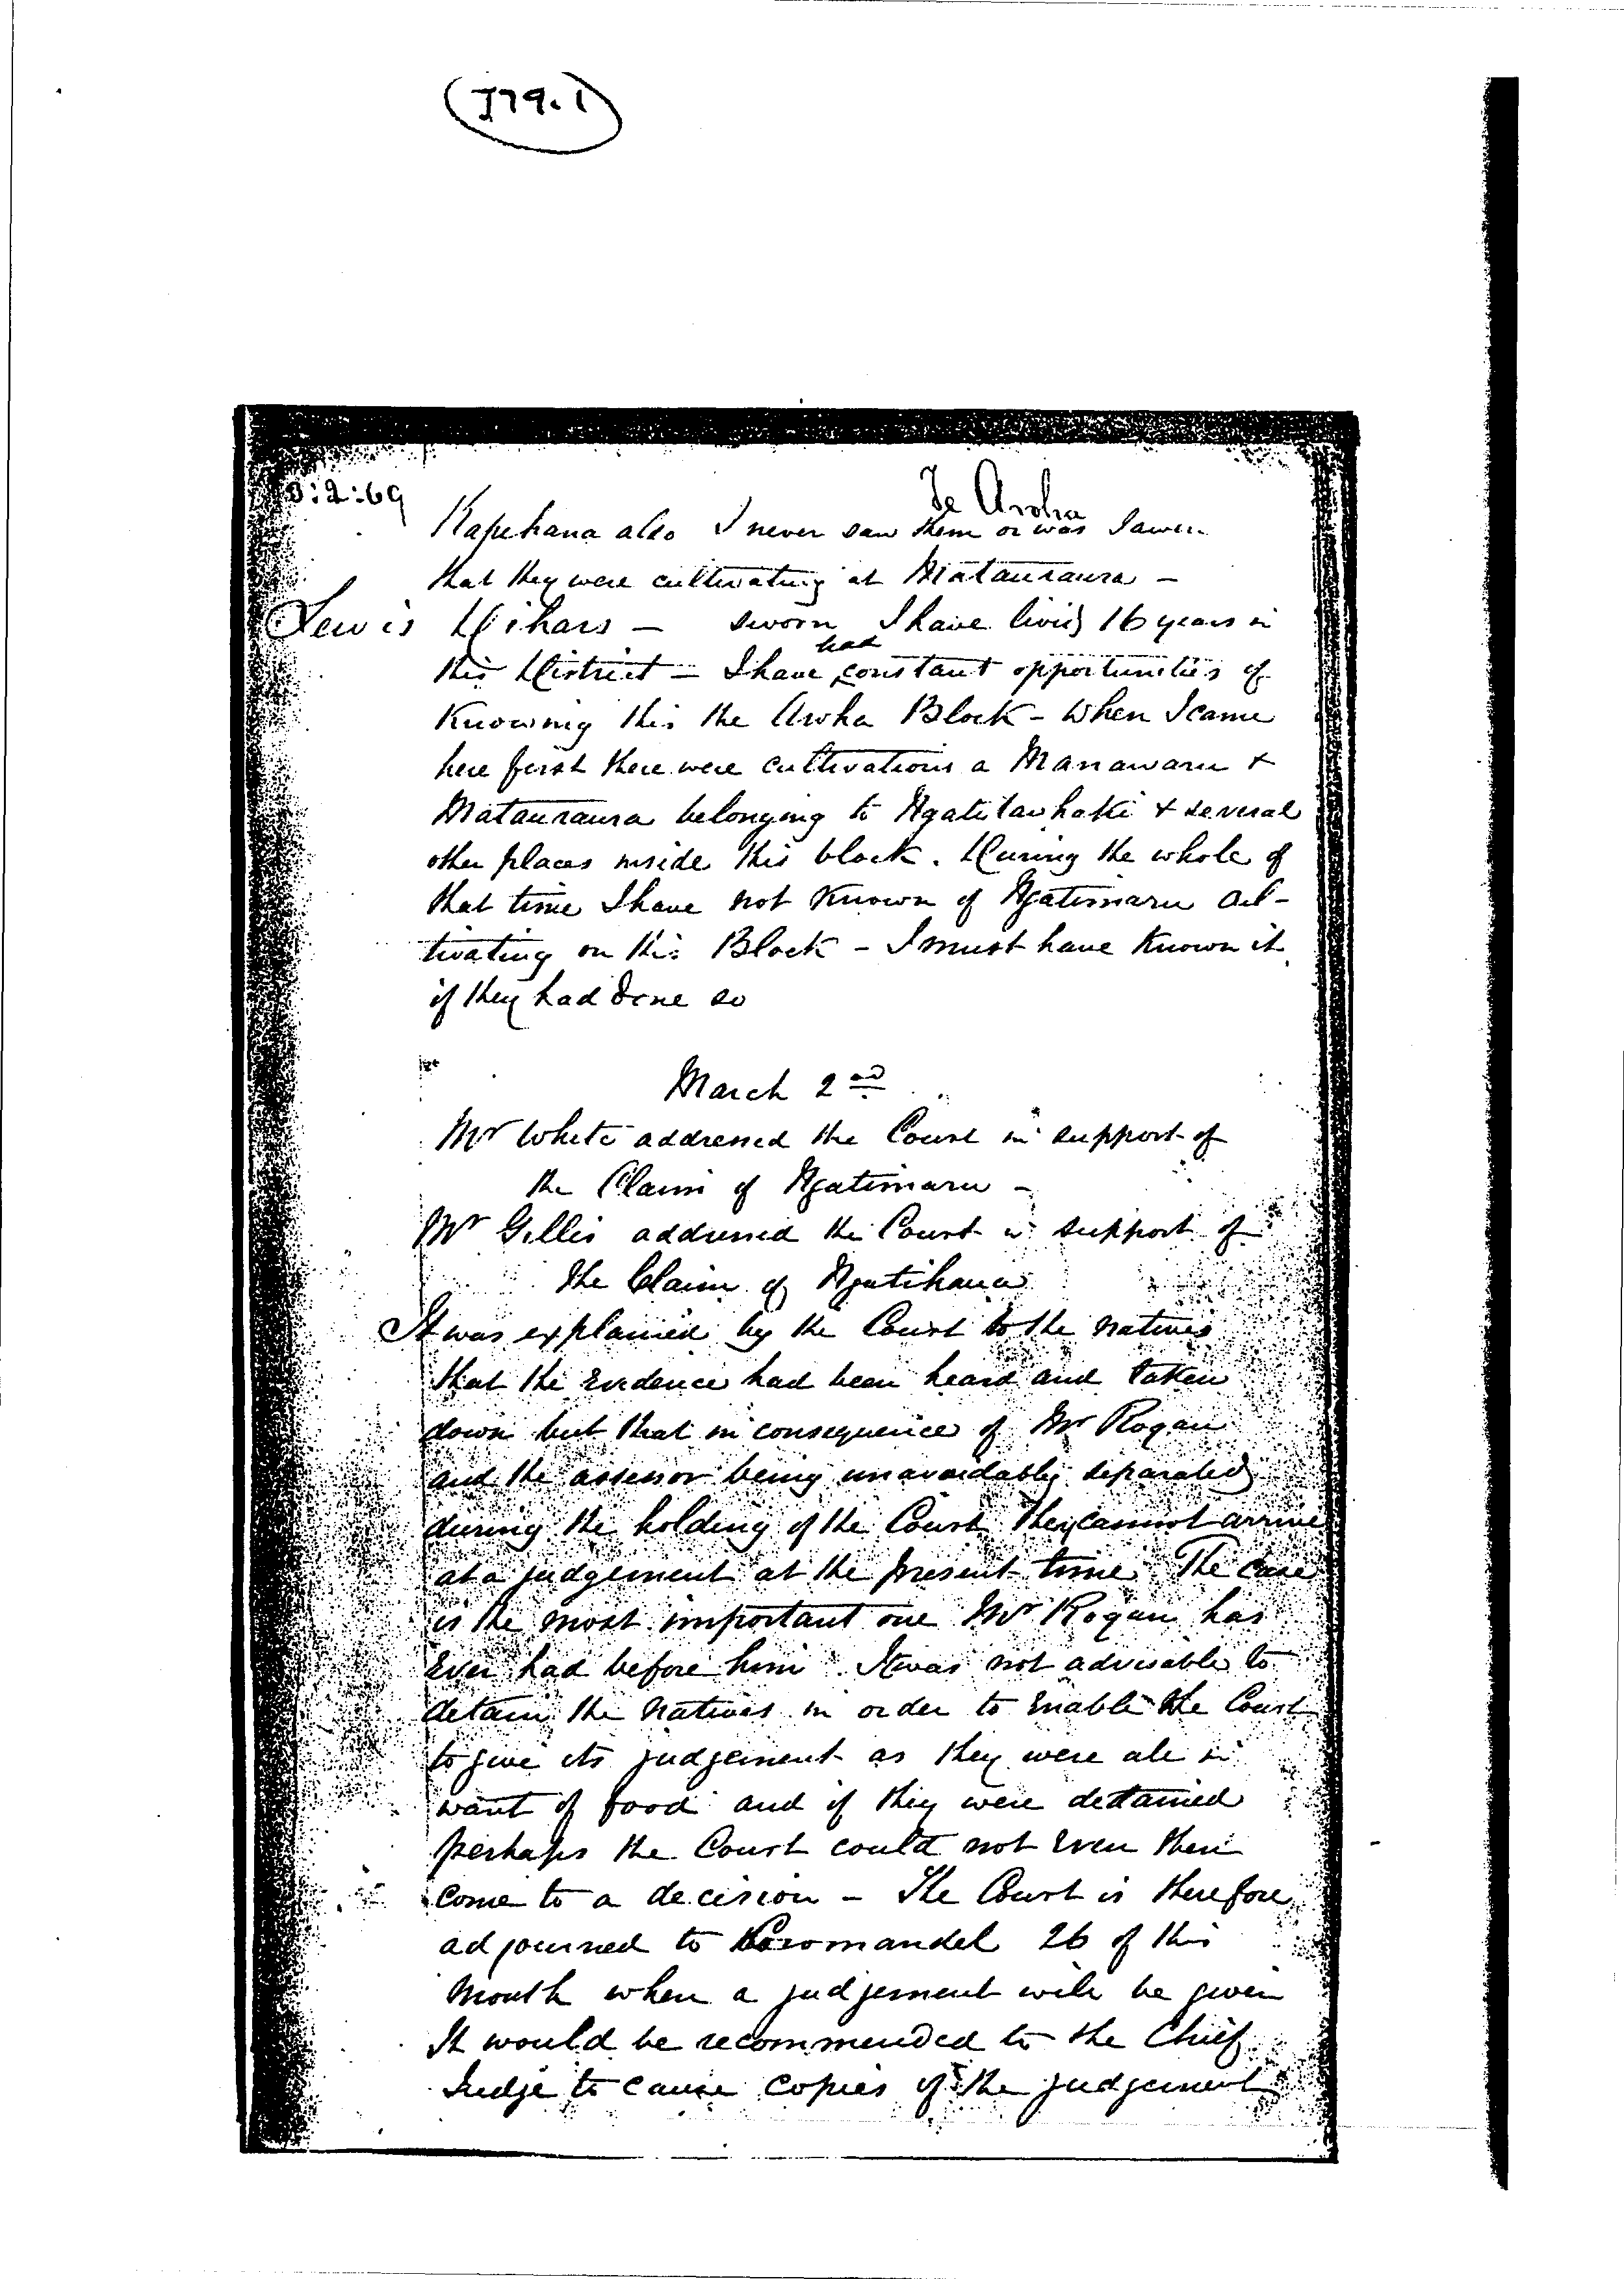 (J79.1)
3:2:69
Te Aroha
Rapehana also I never saw them or was I awer
that they were cultivating at Matauraura -
Lewis Dihars - sworn I have lived 16 years in
this District - I have had constant opportunities of
Knowing this the Aroha Block - When I came
here first there were cultivations a Manawaru +
Matauraura belonging to Ngatitawhaki + several
other places inside this block. During the whole of
that time I have not Known of Ngatimaru cul-
tivating on this Block - I must have Known it
if they had done so
March 2nd
Mr White addressed the Court in support of
the Claim of Ngatimaru -
Mr Gillis addressed the Court in support of
the Claim of Ngatihaua
It was explained by the Court to the natives
that the Evidence had been heard and taken
down but that in consequence of Mr Rogan
and the assessor being unavoidably separated
during the holding of the Court they cannot arrive
at a judgement at the present time The case
is the most important one Mr Rogan has
Ever had before him It was not advisable to
detain the Natives in order to Enable the Court
to give its judgement as they were all in
want of food and if they were detained
perhaps the Court could not Even then
Come to a decision - The Court is therefore
adjourned to Coromandel 26 of this
Month when a judgement will be given
It would be recommended to the Chief
Judge to cause copies of the judgement